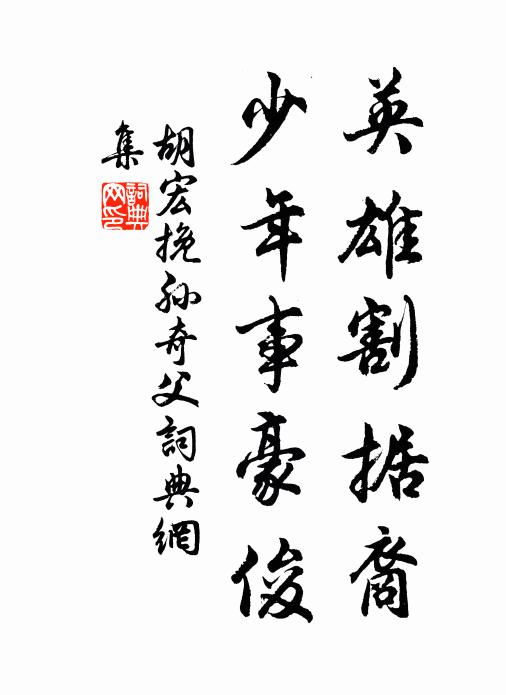 英雄割据裔
少年事豪俊
胡宏挽孙奇父詞典網
集
詞典
网印